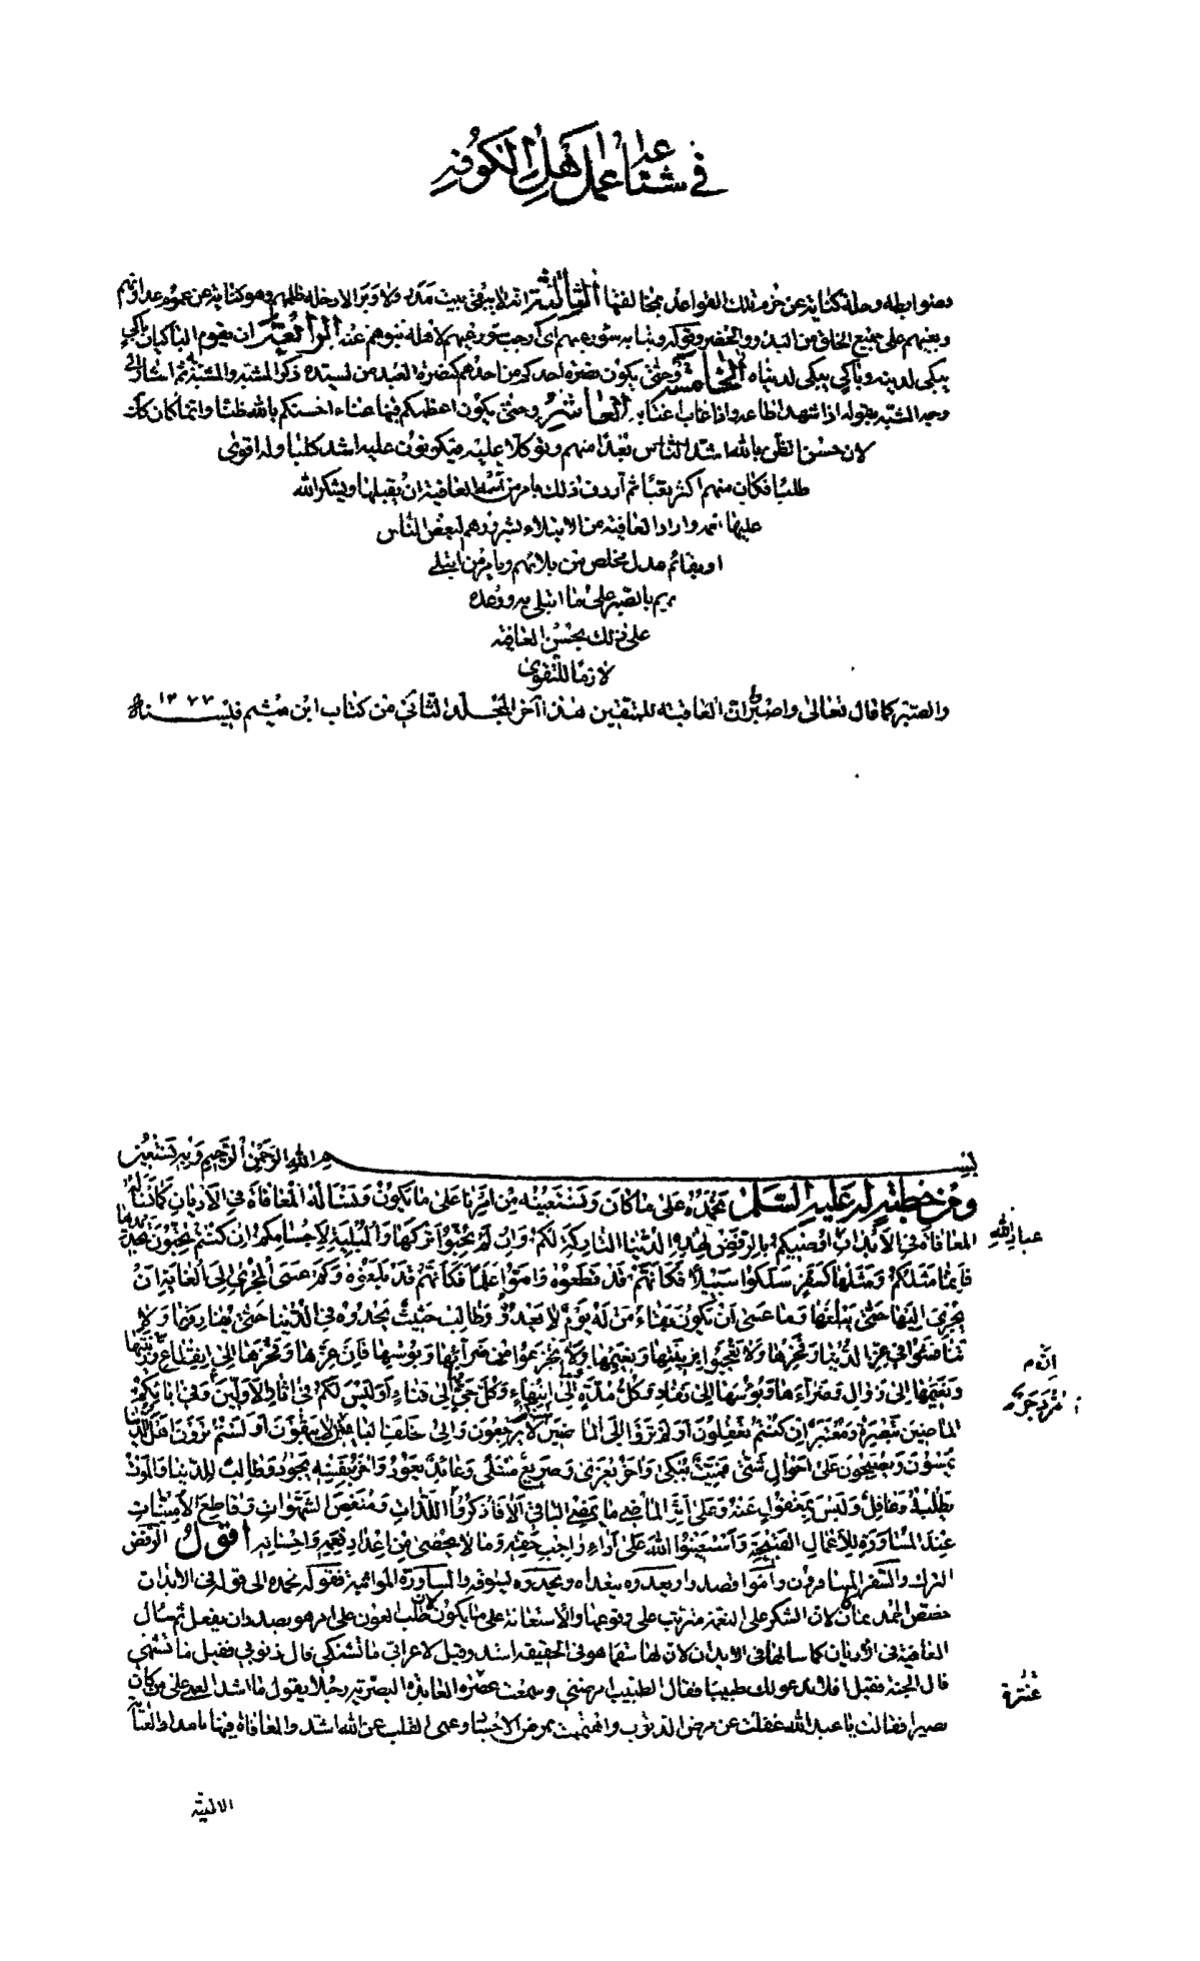 في شناعة عمل اهل الكوفة
وضوابطه وحله كناية عن خرم تلك القواعد بمخالفتها الثالث انه لا يبقى بيت مدر ولا وبر الا دخله ظلمهم وهو كناية عن عموم عداوتهم
وبغيهم على جميع الخلق من البدو والحضر وقوله ونبا به سوء رعيهم اى اوجب سوء رعيهم لاهله نبوهم عنه الرابع ان يقوم الباكيان باك
يبكى لدينه وباكى يبكى لدنياه الخامس وحتى يكون نصرة احدكم من احدهم كنصرة العبد من سيده ذكر المشبه والمشبه به ثم اشار الى
وجه الشبه بقوله اذا شهد اطاعه واذا غاب اغتابه العاشر وحتى يكون اعظمكم فيها عناء احسنكم بالله ظنا وانما كان كذلك
لان حسن الظن بالله اشد الناس بعدا منهم وتوكلا عليه فيكونون عليه اشد كلبا وله اقوى
طلبا فكان منهم اكثر تعبا ثم اردف ذلك بامر من اتته العافية ان يقبلها ويشكر الله
عليها واراد العافية من الابتلاء بشرورهم لبعض الناس
او بقائم عدل مخلص من بلائهم ويامر من ابتلى
بهم بالصبر على ما ابتلى به ووعده
على ذلك بحسن العاقبة
لازما للتقوى
والصبر كما قال تعالى واصبر ان العاقبة للمتقين هذا آخر المجلد الثاني من كتاب ابن ميثم ١٣٧٧
بسم الله الرحمن الرحيم وبه نستعين
ومن خطبة له عليه السلم نحمده على ما كان ونستعينه من امرنا على ما يكون ونسأله المعافاة في الاديان كما نسأله
عباد الله
المعافاة في الابدان اوصيكم بالرفض لهذه الدنيا التاركة لكم وان لم تحبوا تركها والمبلية لاجسامكم وان كنتم تحبون تجديدها
فانما مثلكم ومثلها كسفر سلكوا سبيلا فكانهم قد قطعوه واموا علما فكانهم قد بلغوه وكم عسى المجري الى الغاية ان
يجرى اليها حتى يبلغها وما عسى ان يكون بقاء من له يوم لا يعدوه وطالب حثيث يحدوه في الدنيا حتى يفارقها ولا
تنافسوا في عز الدنيا وفخرها ولا تعجبوا بزينتها ونعيمها ولا تجزعوا من ضرائها وبؤسها فان عزها وفخرها الى انقطاع وزينتها
ونعيمها الى زوال وضراءها وبؤسها الى نفاد وكل مدة فيها الى انتهاء وكل حي فيها الى فناء اوليس لكم في اثار الاولين وفي ابائكم
مزدجر
الماضين تبصرة ومعتبر ان كنتم تعقلون اولم تروا الى الماضين منكم لا يرجعون والى خلف الباقين لا يبقون اولستم ترون اهل الدنيا
يمسون ويصبحون على احوال شتى فميت يبكى واخر يعزى وصريع مبتلى وعائد يعود واخر بنفسه يجود وطالب للدنيا والموت
يطلبه وغافل وليس بمغفول عنه وعلى اثر الماضي ما يمضي الباقي الا فاذكروا هادم اللذات ومنغص الشهوات وقاطع الامنيات
عند المساورة للاعمال القبيحة واستعينوا الله على اداء واجب حقه وما لا يحصى من اعداد نعمه واحسانه اقول الرفض
الترك والسفر المسافرون واموا قصدوا ويعدوه يتعداه ويحدوه يسوقه والمساورة المواثبة فقوله نحمده الى قوله في الابدان
خصص الحمد بما كان لان الشكر على النعمة مترتب على وقوعها والاستعانة على ما يكون لان طلب العون على امر هو بصدد ان يفعل ثم سال
العافية في الاديان كما سالها في الابدان لان لها سقما هو في الحقيقة اشد وقيل لاعرابي ما تشتكى قال ذنوبي فقيل ما تشتهى
قال الجنة فقيل افلا ندعو لك طبيبا فقال الطبيب امرضني وسمعت عفيرة العابدة البصرية رجلا يقول ما اشد العمى على من كان
بصيرا فقالت يا عبد الله غفلت عن مرض الذنوب واهتممت بمرض الاجساد وعمى القلب عن الله اشد والمعافاة فيها بامداد العناية
الالهية